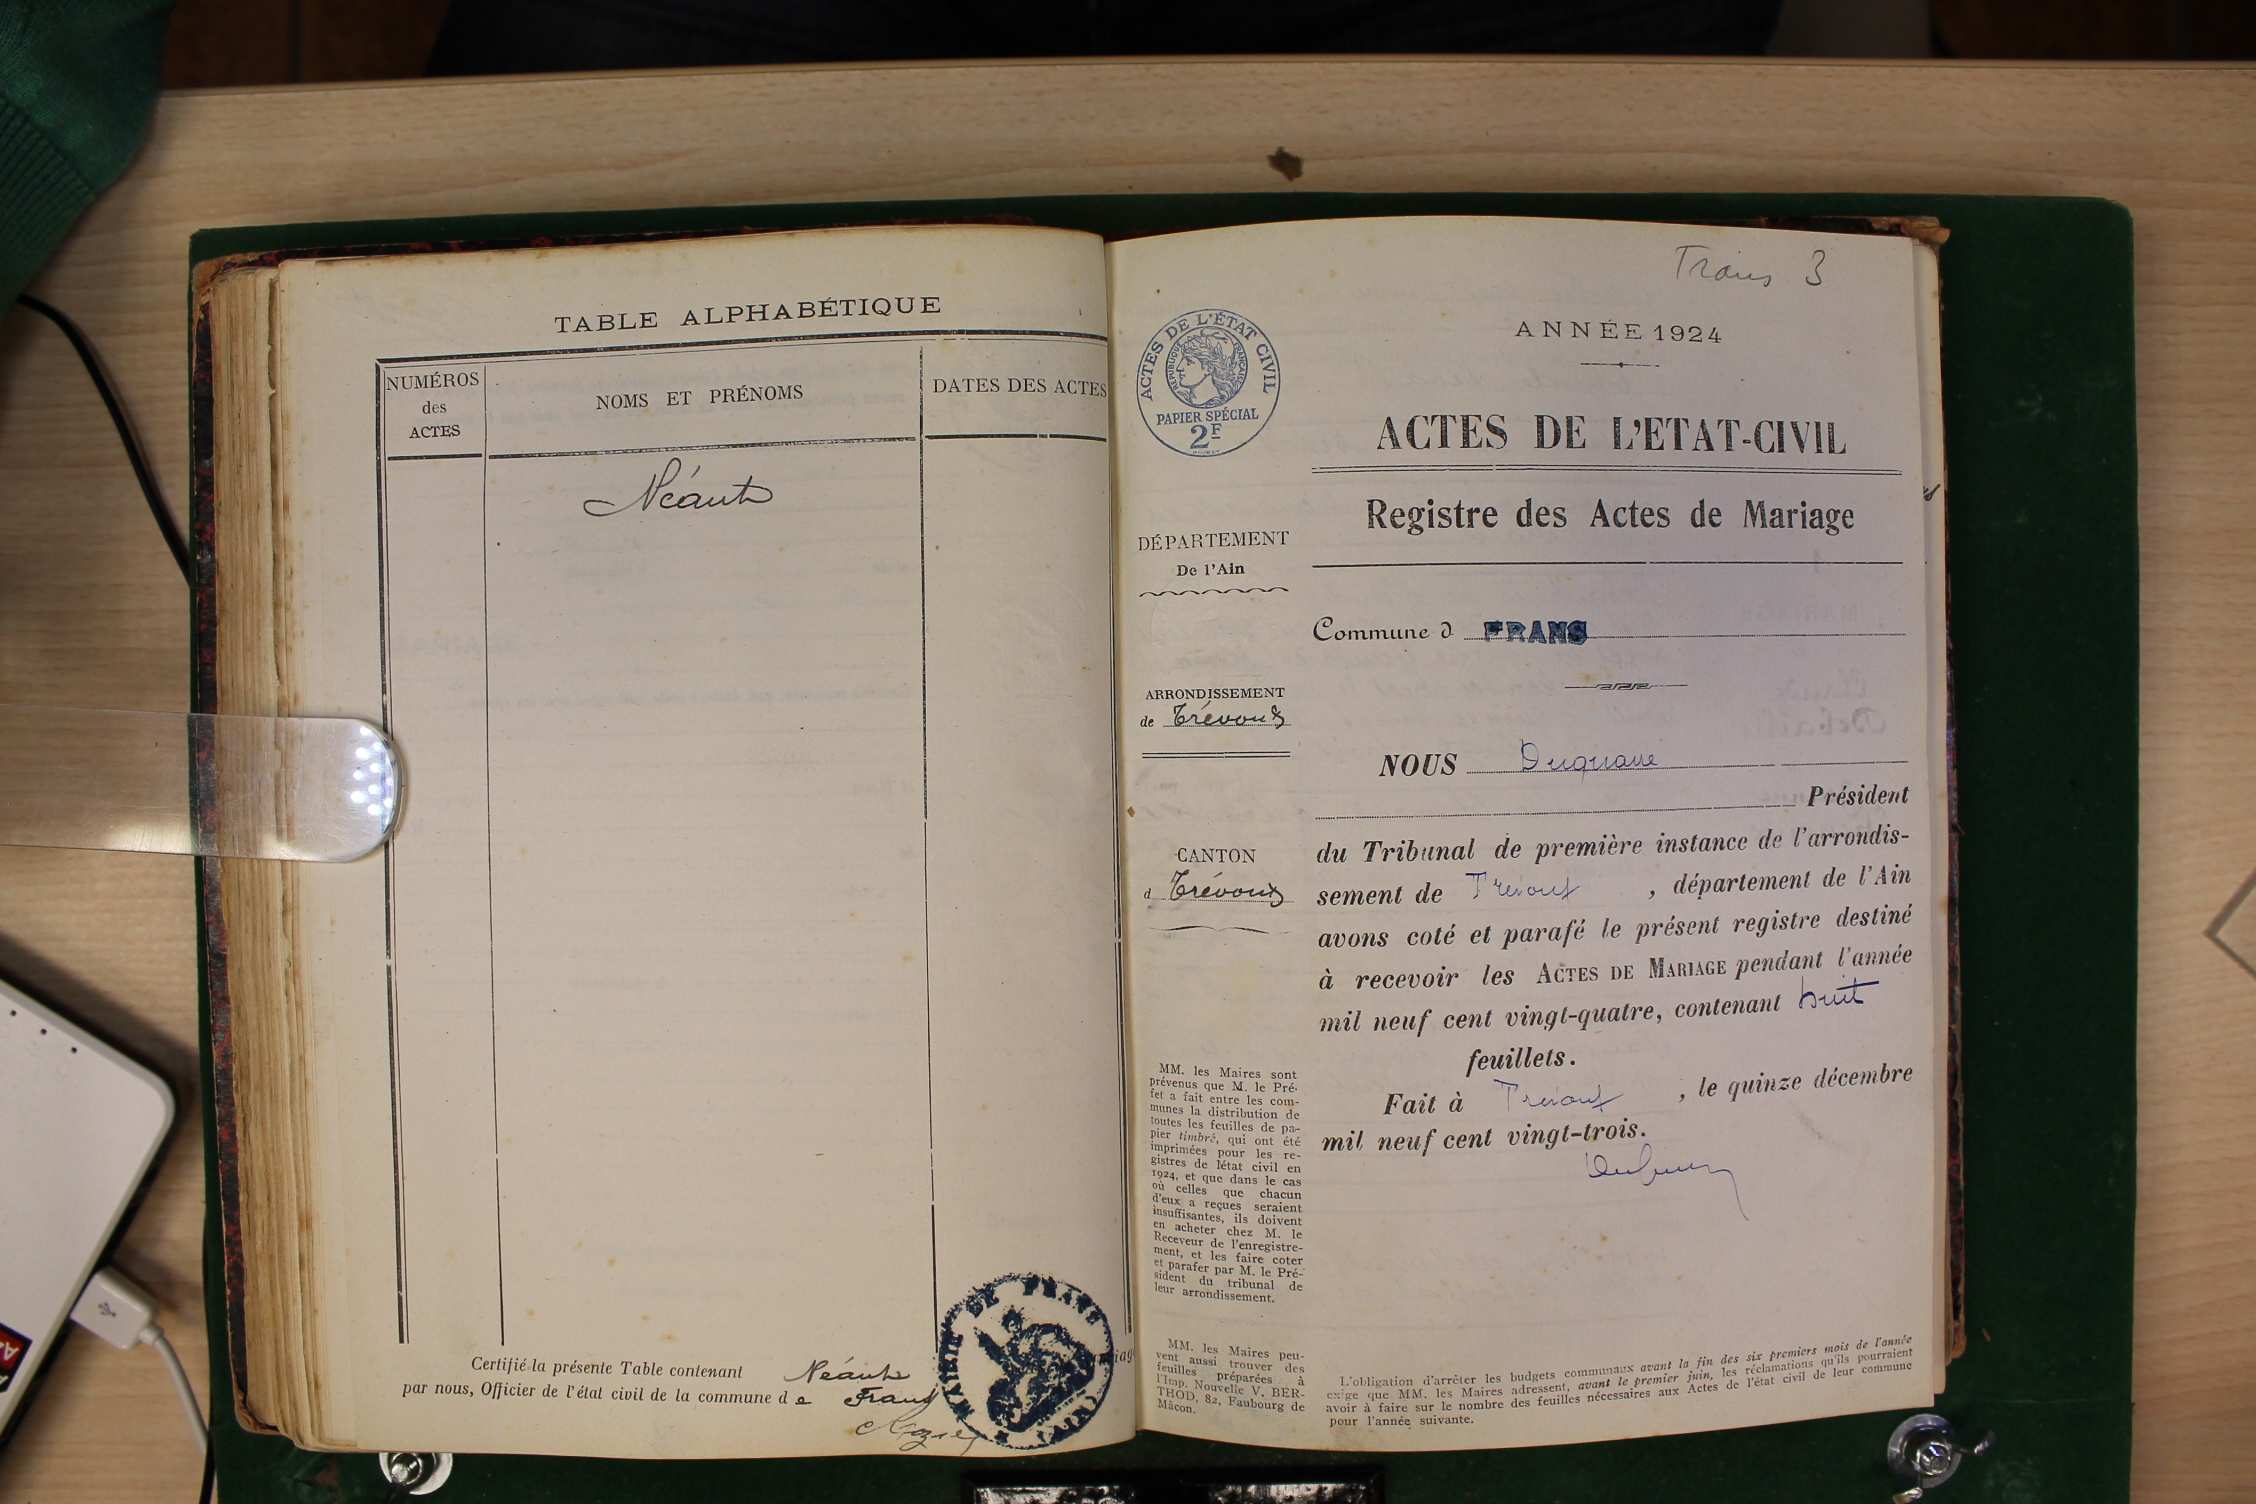 TABLE ALPHABÉTIQUE
NUMÉROS
des
ACTES
NOMS ET PRÉNOMS
DATES DES ACTES
Néant
Certifié la présente Table contenant Néant
par nous, Officier de l'état civil de la commune d e Frans
MAIRIE DE FRANS (AIN)
Frans 3
ACTES DE L'ÉTAT CIVIL
RÉPUBLIQUE FRANÇAISE
PAPIER SPÉCIAL
2F
ANNÉE 1924
ACTES DE L'ETAT-CIVIL
Registre des Actes de Mariage
DÉPARTEMENT
De l'Ain
Commune d FRANS
ARRONDISSEMENT
de Trévoux
CANTON
d Trévoux
NOUS
Président
du Tribunal de première instance de l'arrondis-
sement de Trévoux , département de l'Ain
avons coté et parafé le présent registre destiné
à recevoir les ACTES DE MARIAGE pendant l'année
mil neuf cent vingt-quatre, contenant huit
feuillets.
Fait à Trévoux , le quinze décembre
mil neuf cent vingt-trois.
MM. les Maires sont
prévenus que M. le Pré-
fet a fait entre les com-
munes la distribution de
toutes les feuilles de pa-
pier timbré, qui ont été
imprimées pour les re-
gistres de létat civil en
1924, et que dans le cas
où celles que chacun
d'eux a reçues seraient
insuffisantes, ils doivent
en acheter chez M. le
Receveur de l'enregistre-
ment, et les faire coter
et parafer par M. le Pré-
sident du tribunal de
leur arrondissement.
MM. les Maires peu-
vent aussi trouver des
feuilles préparées à
l'Imp. Nouvelle V. BER-
THOD, 82, Faubourg de
Mâcon.
L'obligation d'arrêter les budgets communaux avant la fin des six premiers mois de l'année
exige que MM. les Maires adressent, avant le premier juin, les réclamations qu'ils pourraient
avoir à faire sur le nombre des feuilles nécessaires aux Actes de l'état civil de leur commune
pour l'année suivante.